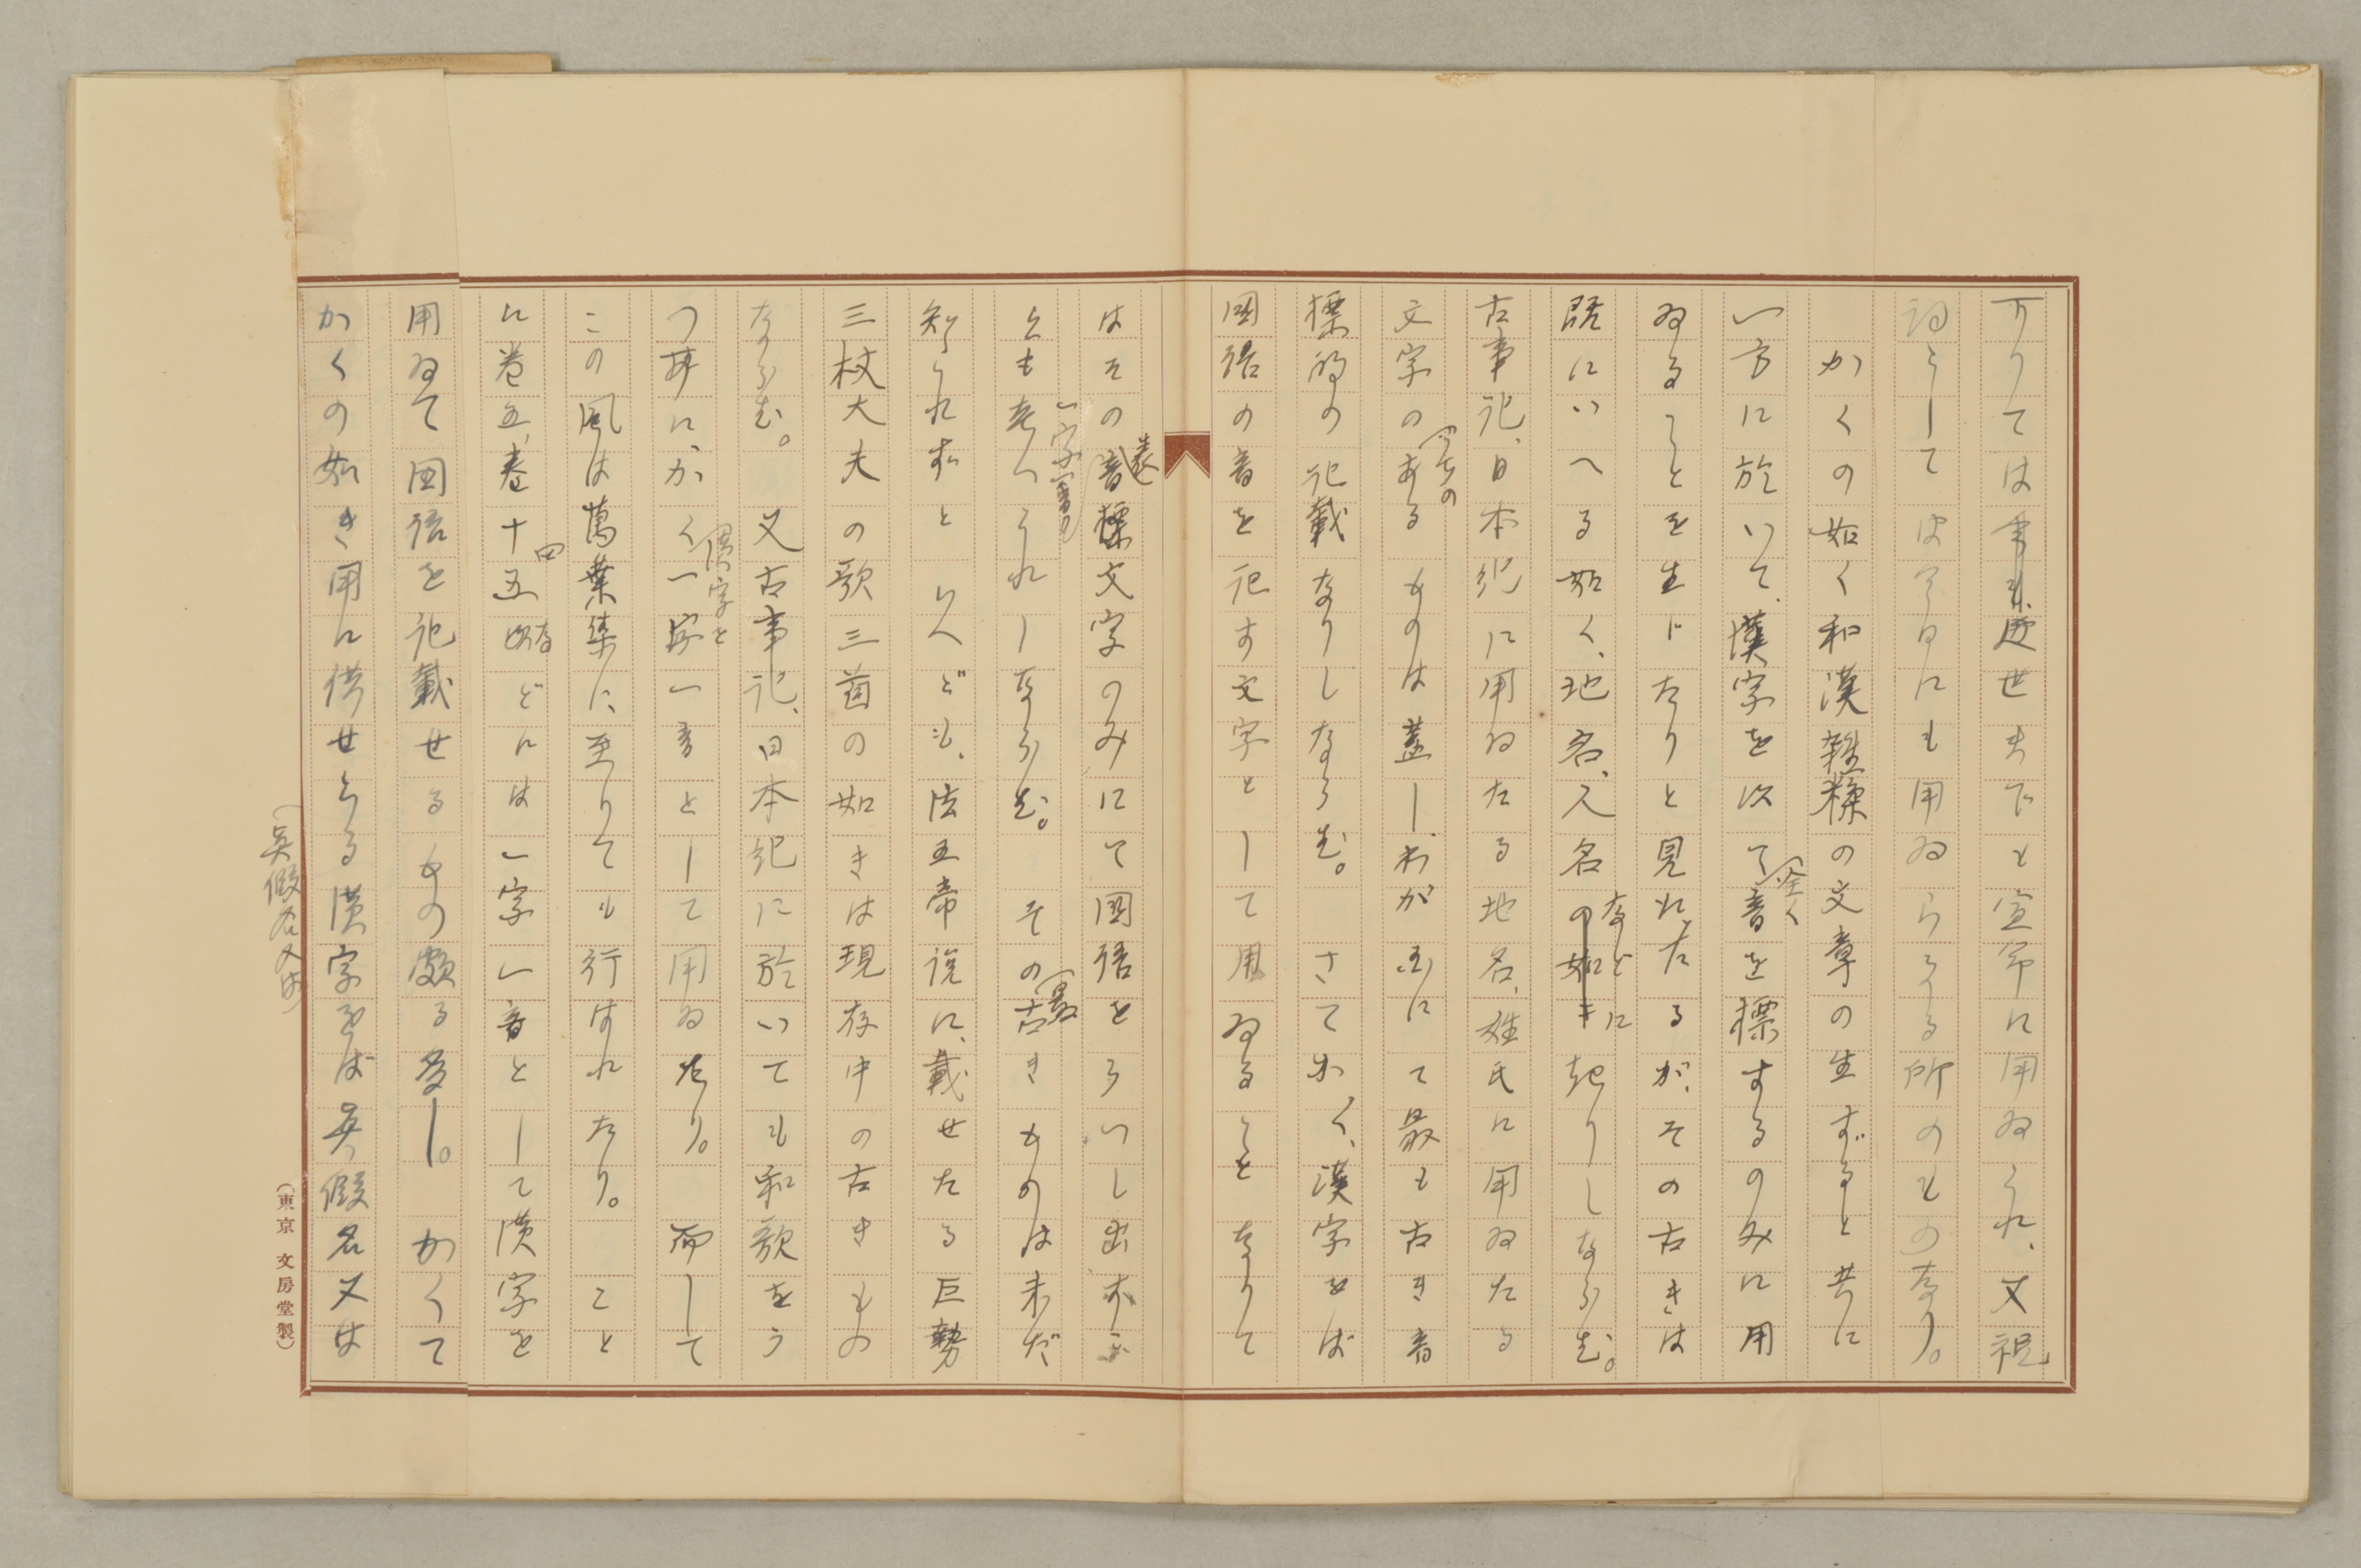 下りては事歴世ま下と宣命に用ゐられ、又祝
詞としては今日にも用ゐらるる所のものなり。
かくの如く和漢雑糅の文章の生ずると共に
一方に於いて、漢字を以て全く音を標するのみに用
ゐることを生じたりと見れたるが、その古きは
既にいへる如く、地名、人名などに起りしならむ。
古事記、日本紀に用ゐたる地名、姓氏に用ゐたる
文字のうちのあるものは蓋し、わが国にて最も古き音
標的の記載なりしならむ。さてかく、漢字をば
国語の音を記す文字として用ゐることとなりて
はその表音文字のみにて国語をうつし出すに
一字
とも考へられしならむ。その最古きものは未だ
知られずといへども、法王帝説に、載せたる巨勢
三杖大夫の歌三首の如きは現存中の古きもの
ならむ。又古事記、日本紀に於いても和歌をう
つすに、かく漢字を一字一音として用ゐたり。而して
この風は萬葉集に至りても行はれたり。こと
に巻五、巻十四などには一字一音として漢字を
用ゐて国語を記載せるもの頗る多し。かくて
かくの如き用に供せらるる漢字をば真假名又は
(真假名又は)
(東京 文房堂製)